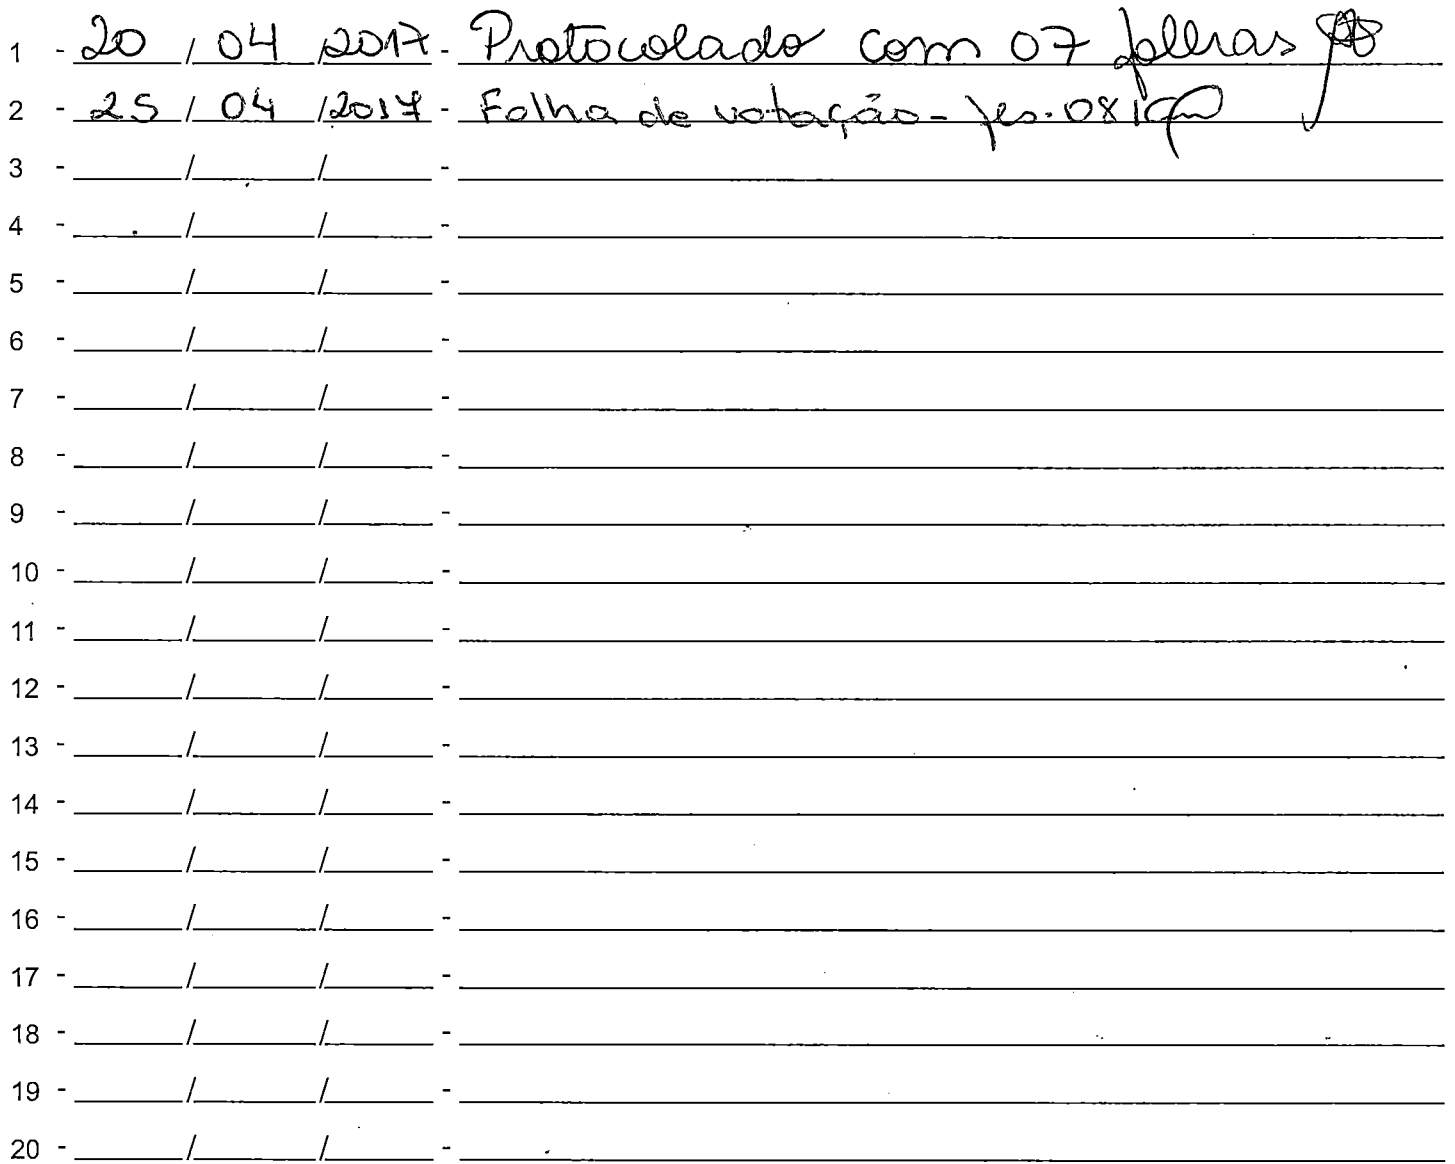 1 - 20 / 04 / 2017 - Protocolado com 07 folhas
2 - 25 / 04 / 2017 - Folha de votação - fls. 08
3 - ___/___/___ -
4 - ___/___/___ -
5 - ___/___/___ -
6 - ___/___/___ -
7 - ___/___/___ -
8 - ___/___/___ -
9 - ___/___/___ -
10 - ___/___/___ -
11 - ___/___/___ -
12 - ___/___/___ -
13 - ___/___/___ -
14 - ___/___/___ -
15 - ___/___/___ -
16 - ___/___/___ -
17 - ___/___/___ -
18 - ___/___/___ -
19 - ___/___/___ -
20 - ___/___/___ -